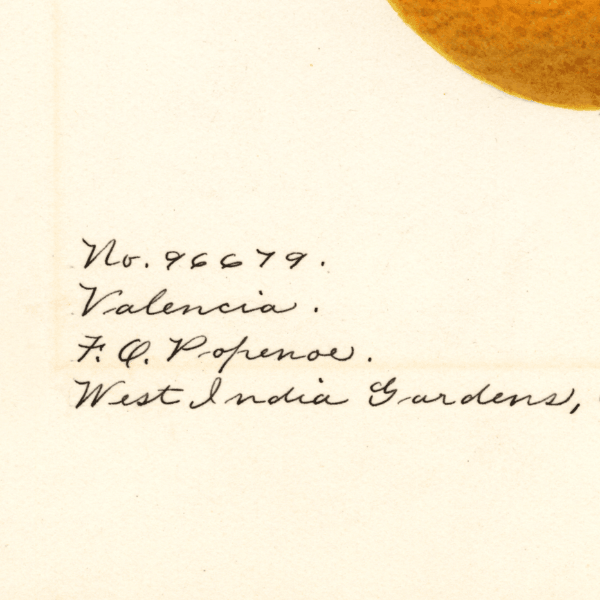 No. 96679.
Valencia.
F. O. Popenoe.
West India Gardens,